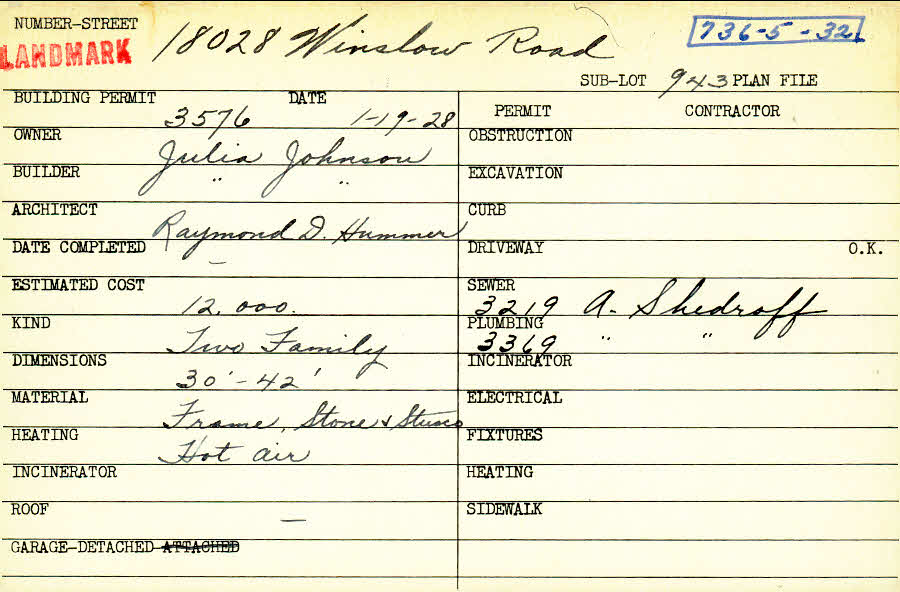 NUMBER-STREET 18028 Winslow Road 736-5-32
LANDMARK
SUB-LOT 943 PLAN FILE
BUILDING PERMIT 3576 DATE 1-19-28
OWNER Julia Johnson
BUILDER " "
ARCHITECT Raymond D. Hummer
DATE COMPLETED —
ESTIMATED COST 12,000.
KIND Two Family
DIMENSIONS 30' - 42'
MATERIAL Frame, Stone & Stucco
HEATING Hot air
INCINERATOR
ROOF —
GARAGE-DETACHED ATTACHED
PERMIT CONTRACTOR
OBSTRUCTION
EXCAVATION
CURB
DRIVEWAY O.K.
SEWER 3219 A. Shedroff
PLUMBING 3369 " "
INCINERATOR
ELECTRICAL
FIXTURES
HEATING
SIDEWALK